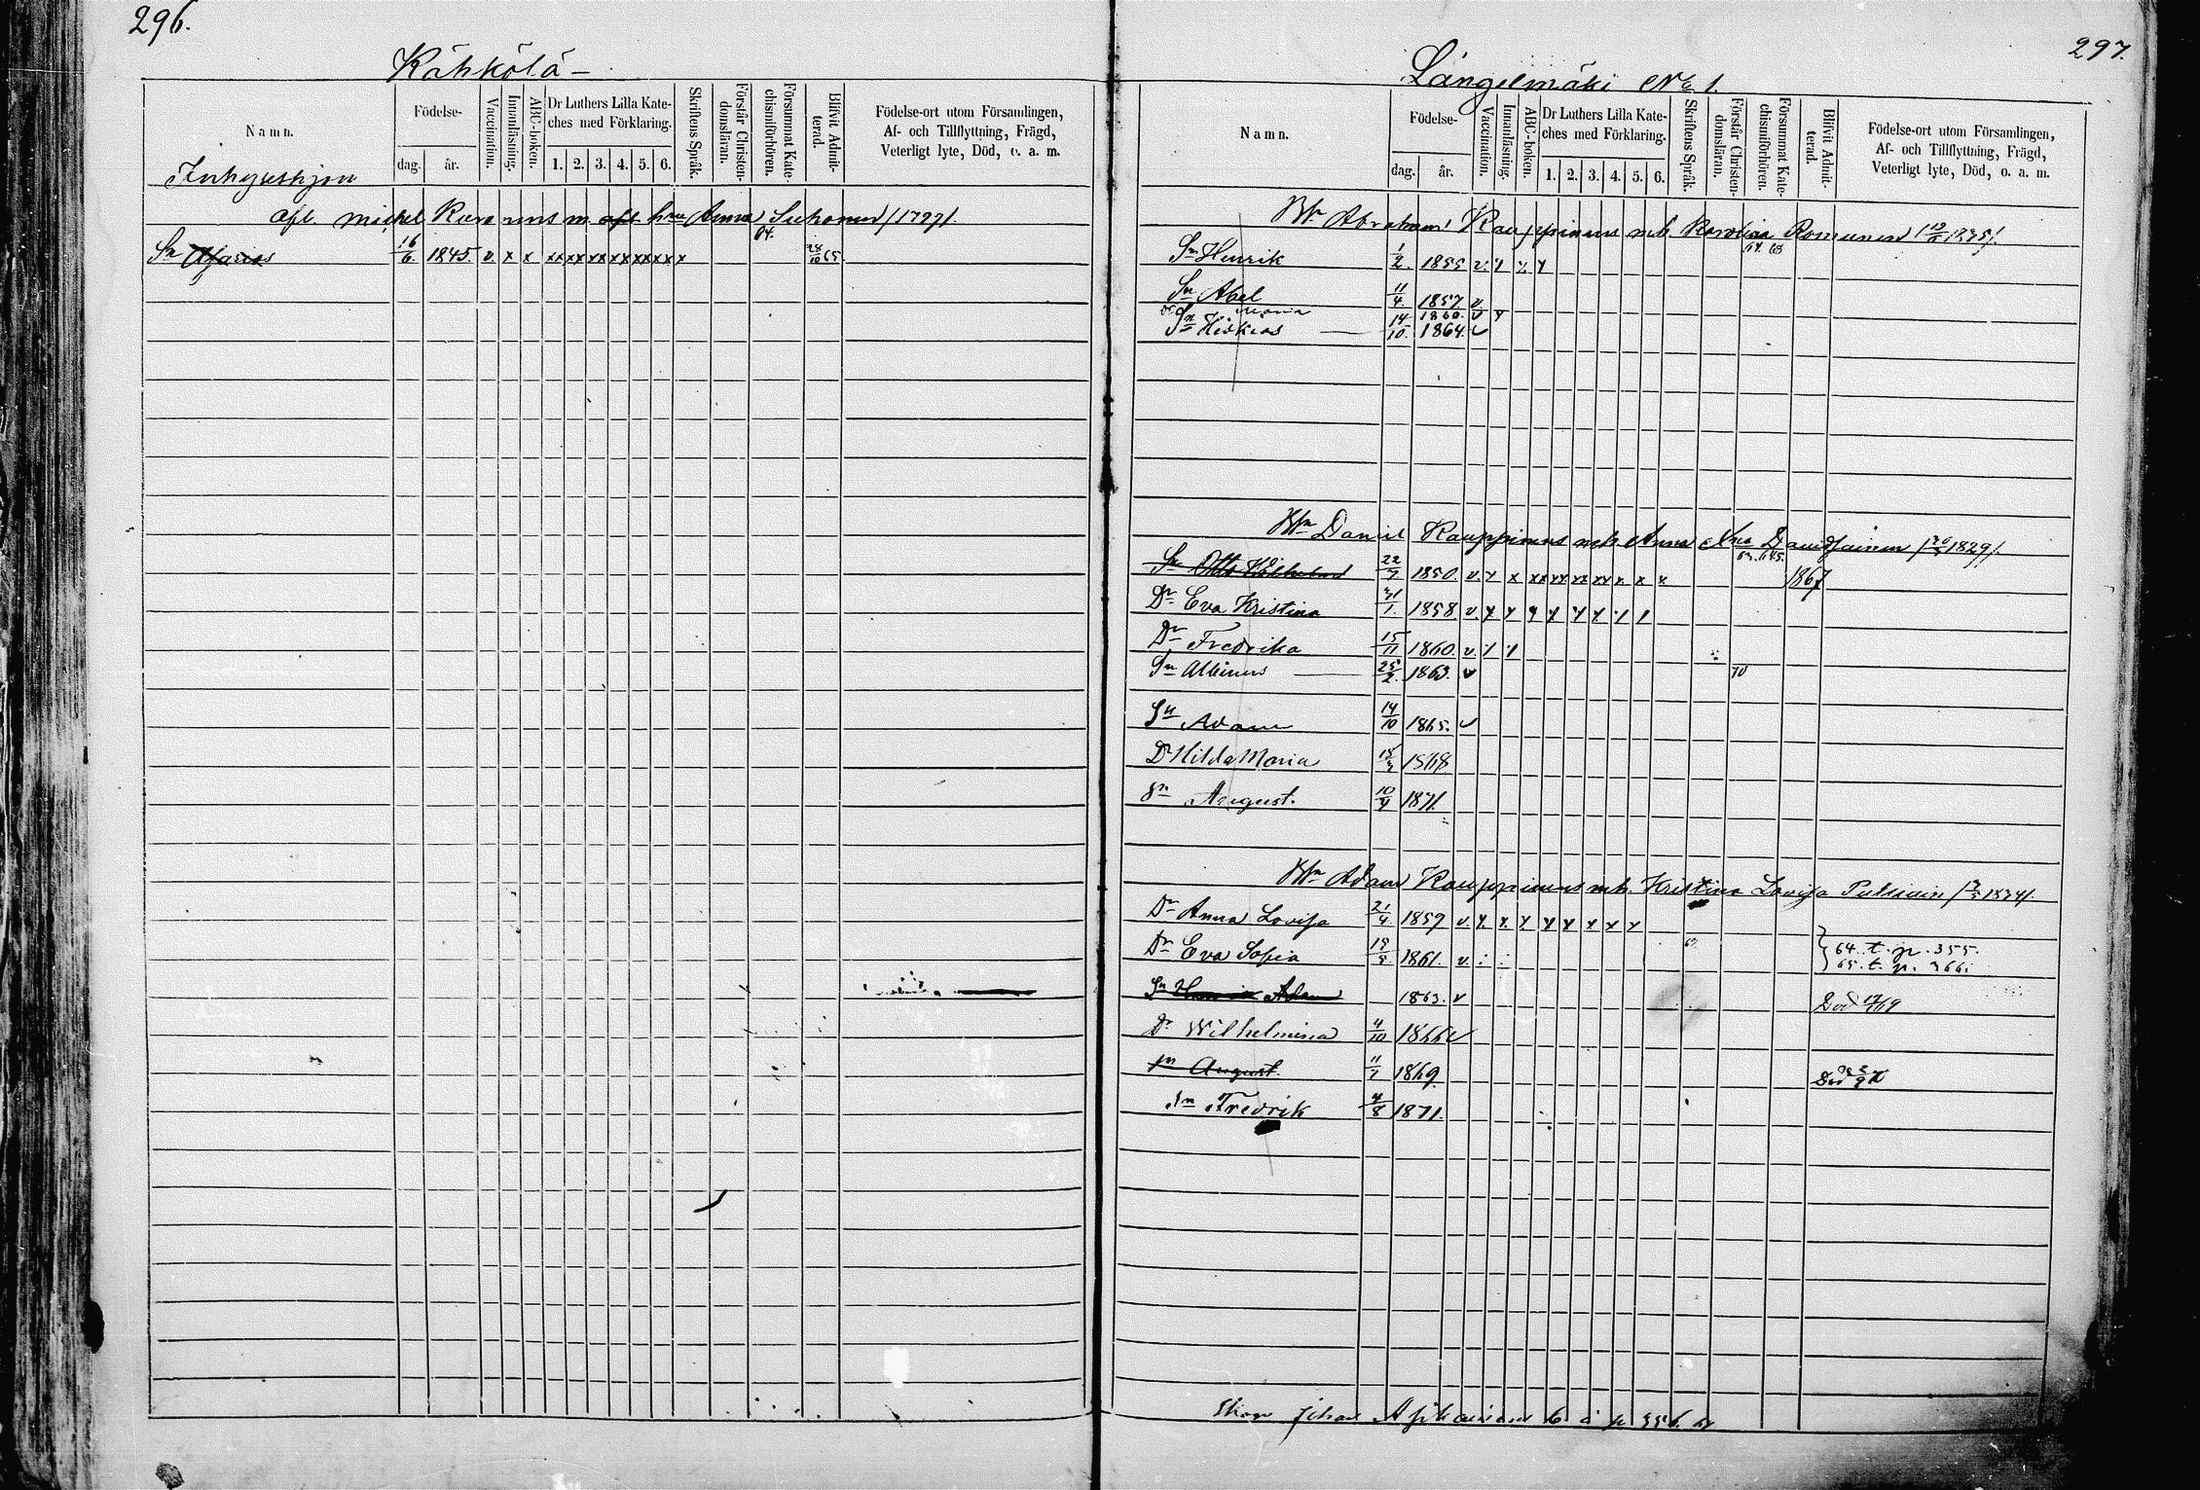 296.
Kähkölä
Namn.
Födelse-
dag. år.
Vaccination.
Innanläsning.
ABC-boken.
Dr Luthers Lilla Kate-
ches med Förklaring.
1. 2. 3. 4. 5. 6.
Skriftens Språk.
Förstår Christen-
domsläran.
Försummat Kate-
chismiförhören.
Blifvit Admit-
terad.
Födelse-ort utom Församlingen,
Af- och Tillflyttning, Frägd,
Veterligt lyte, Död, o. a. m.
Inhyseshjon
afl. Michel m. hru Anna Suhonen /1797/.
64.
Sn 16/6 1845. v. x x xx xx xx xx xx xx x 24/10 65
297.
Längelmäki No 1.
Namn.
Födelse-
dag. år.
Vaccination.
Innanläsning.
ABC-boken.
Dr Luthers Lilla Kate-
ches med Förklaring.
1. 2. 3. 4. 5. 6.
Skriftens Språk.
Förstår Christen-
domsläran.
Försummat Kate-
chismiförhören.
Blifvit Admit-
terad.
Födelse-ort utom Församlingen,
Af- och Tillflyttning, Frägd,
Veterligt lyte, Död, o. a. m.
Abraham Kauppinens Karolina Romunen
Sn Henrik 1/2. 1855 v.
Sn Abel 11/4. 1857. v.
Maria 1860. v
Sn Hiskias 14/10. 1864. v
Daniel Kauppinens Anna 1829/.
Sn Otto Wilhelm 22/7 1850. v. 1867
Dr Eva Kristina 31/1. 1858. v.
Dr Fredrika 15/11 1860. v.
Sn Albinus 25/2. 1863. v 70
Sn Adam 14/10 1865. v
Dr Hilda Maria 1868
Sn August. 10/4 1871.
Adam Kauppinens Kristina Lovisa
Dr Anna Lovisa 21/4 1859 v.
Dr Eva Sofia 1861. v.
64. t. p. 355.
65. t. p. 366
Sn Adam 1863. v Död
Dr Wilhelmina 4/10 1866 v
Sn August. 11/7 1869 Död
Sn Fredrik 4/8 1871.